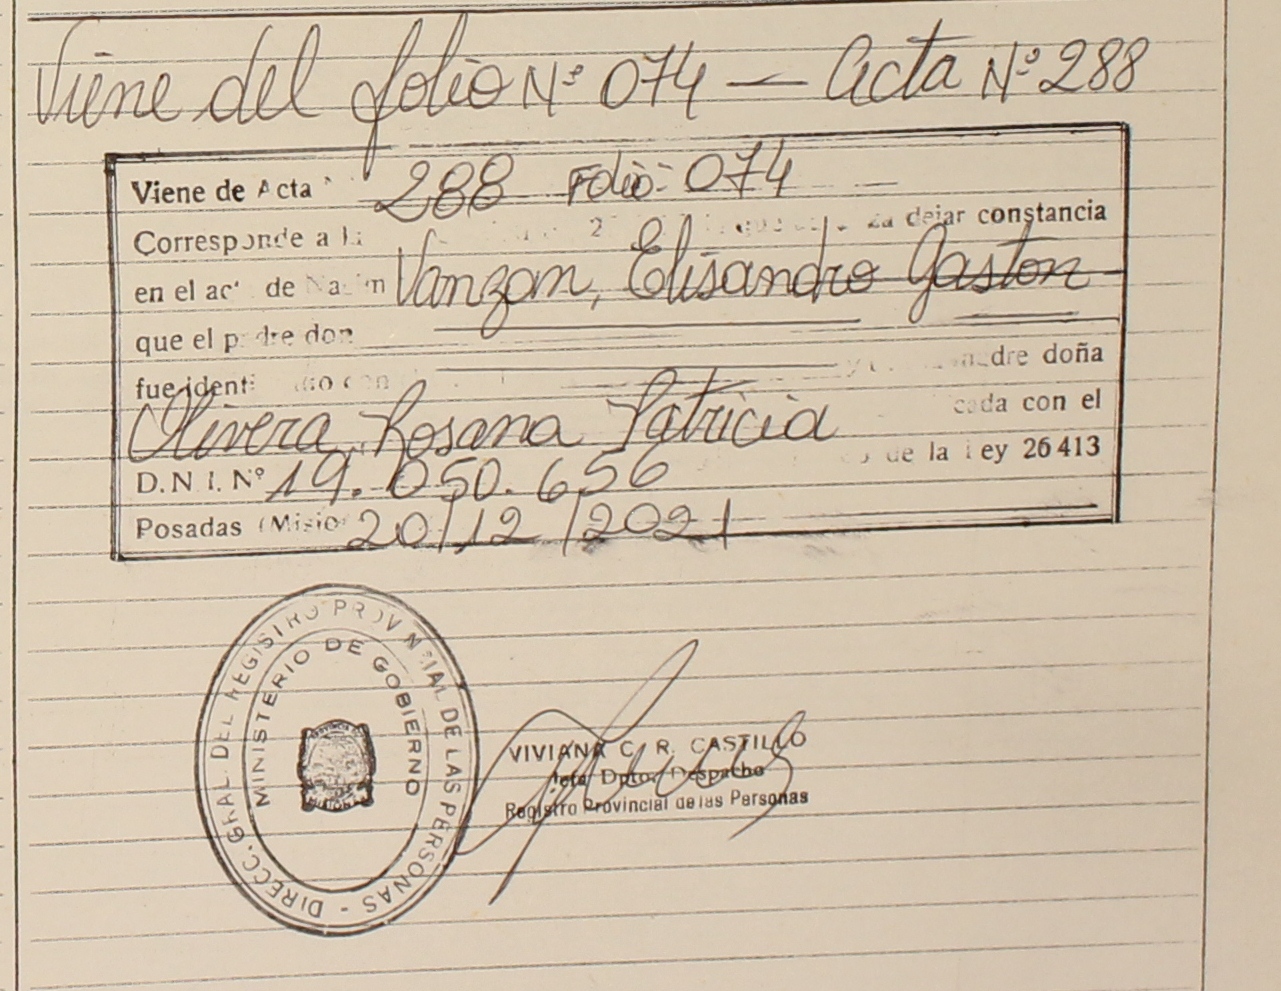 Viene del folio Nº 074 — Acta Nº 288
Viene de Acta 288 Folio: 074
Corresponde a la dejar constancia
en el de Vanzan, Elisandro Gaston
que el padre don
fue doña
Olivera, Rosana Patricia con el
de la Ley 26413
D.N.I. Nº 19.050.656
Posadas 20/12/2021
DIRECC. GRAL. DEL REGISTRO PROVINCIAL DE LAS PERSONAS -
MINISTERIO DE GOBIERNO
VIVIANA C. R. CASTILLO
Jefa Dpto. Despacho
Registro Provincial de las Personas